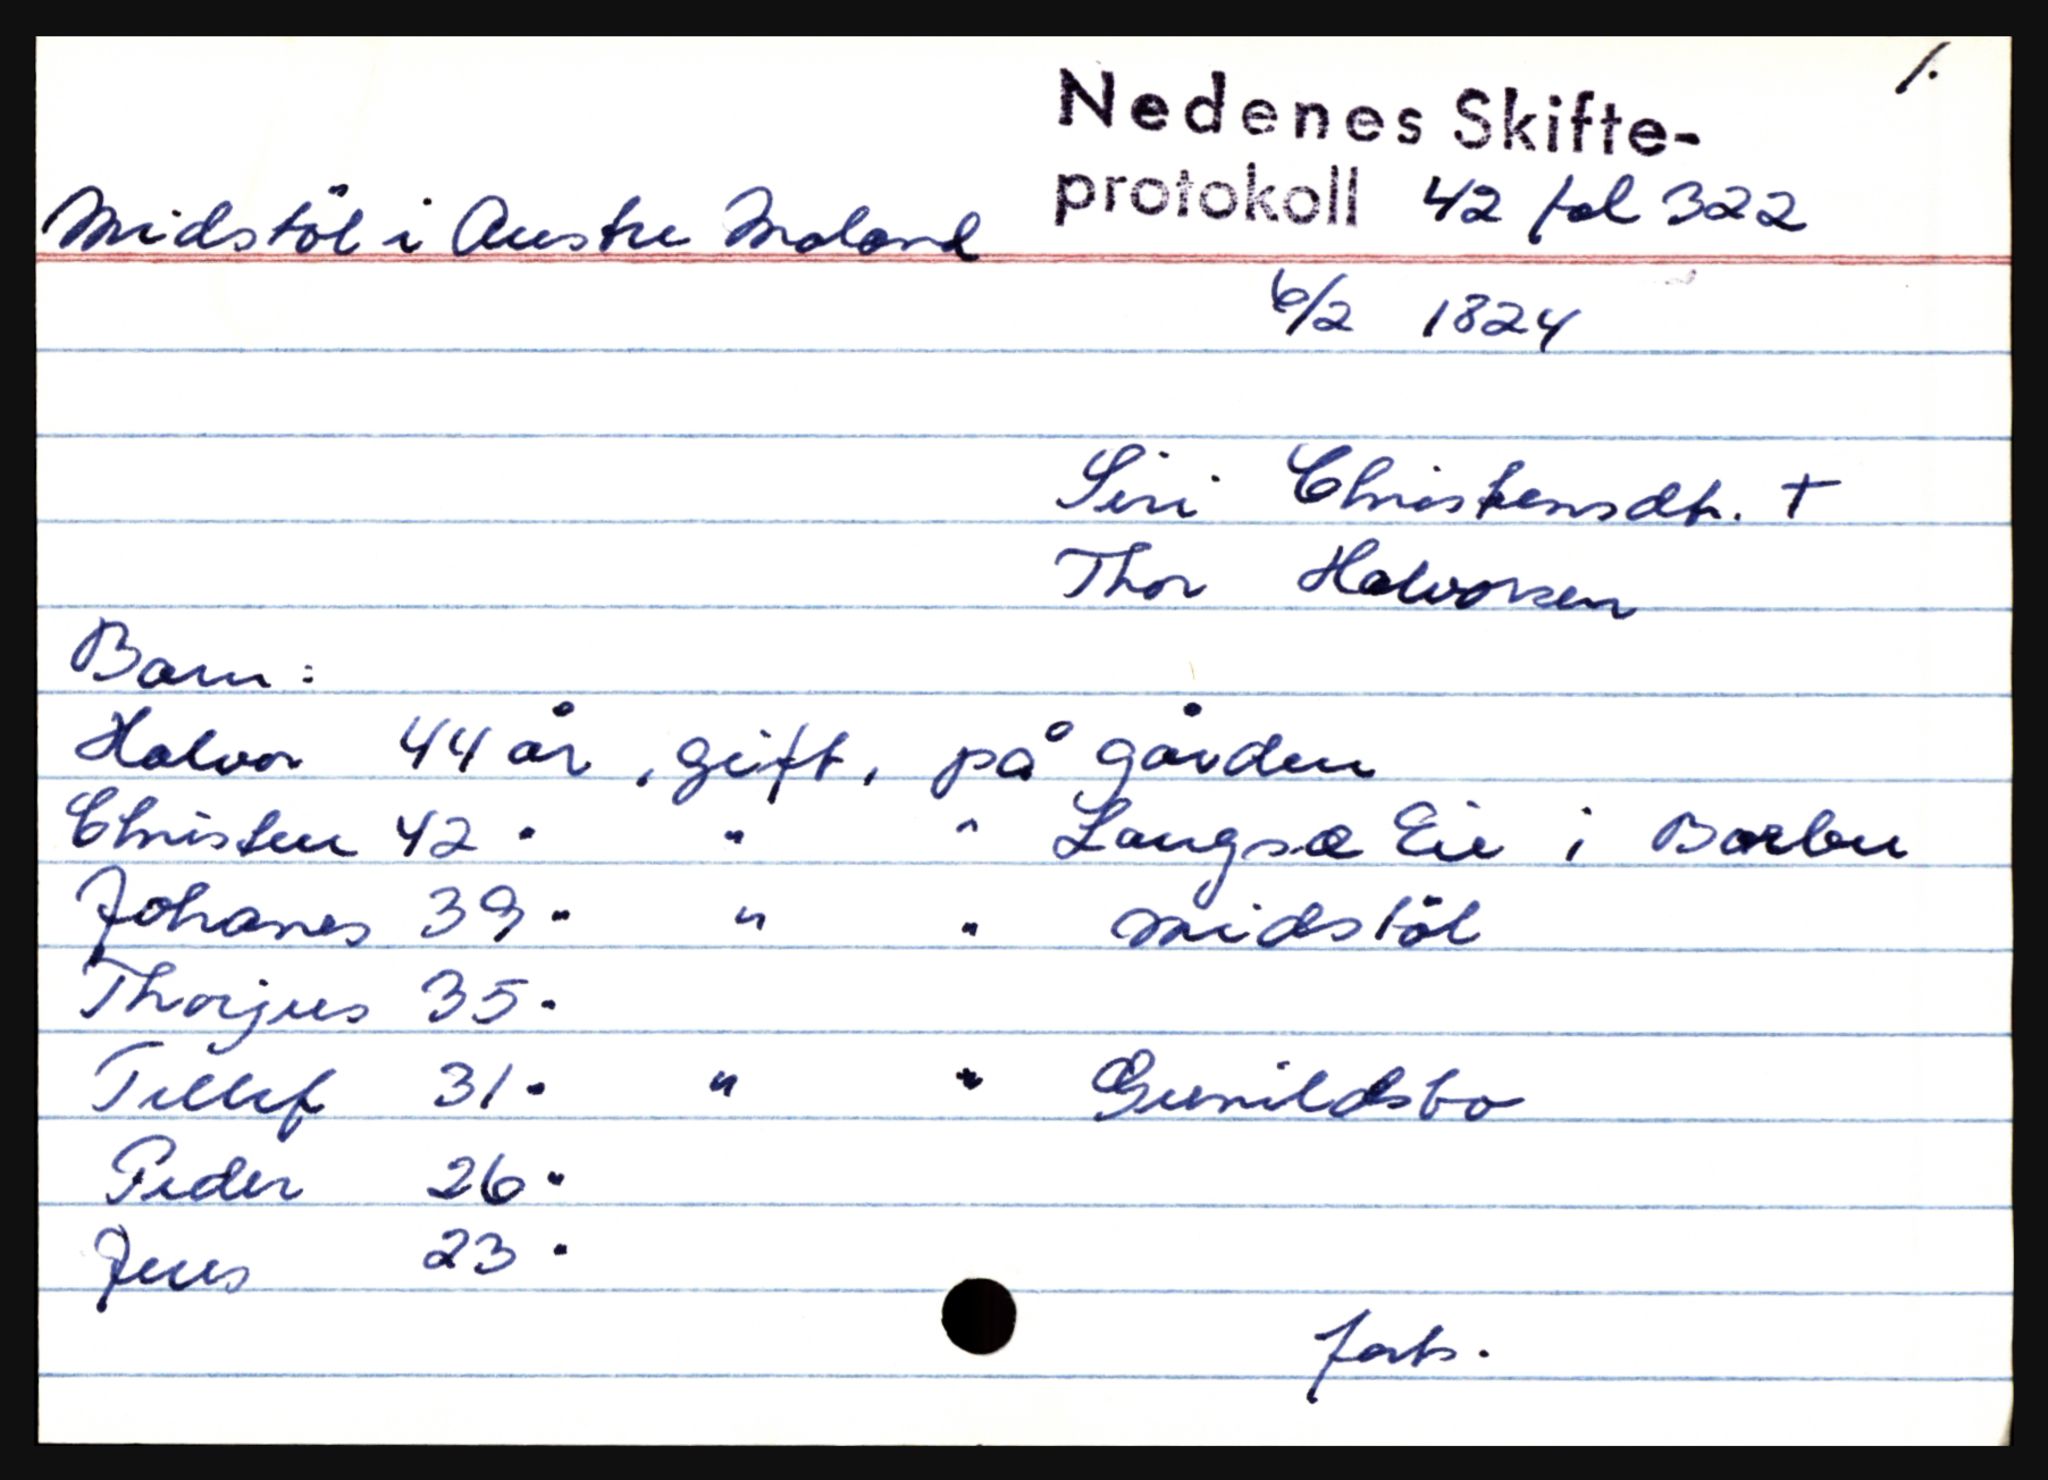 1.
Nedenes Skifte-
protokoll 42 fol 322
Midstöl i Austre Moland
6/2 1824
Siri Christensdtr. †
Thor Halvorsen
Barn:
Halvor 44 år, gift, på gården
Christen 42 " " " Langsæ Eie i Barbu
Johanes 39 " " " Midstöl
Thorjus 35 "
Tellef 31 " " " Gunildsbo
Peder 26 "
Jens 23 "
forts.